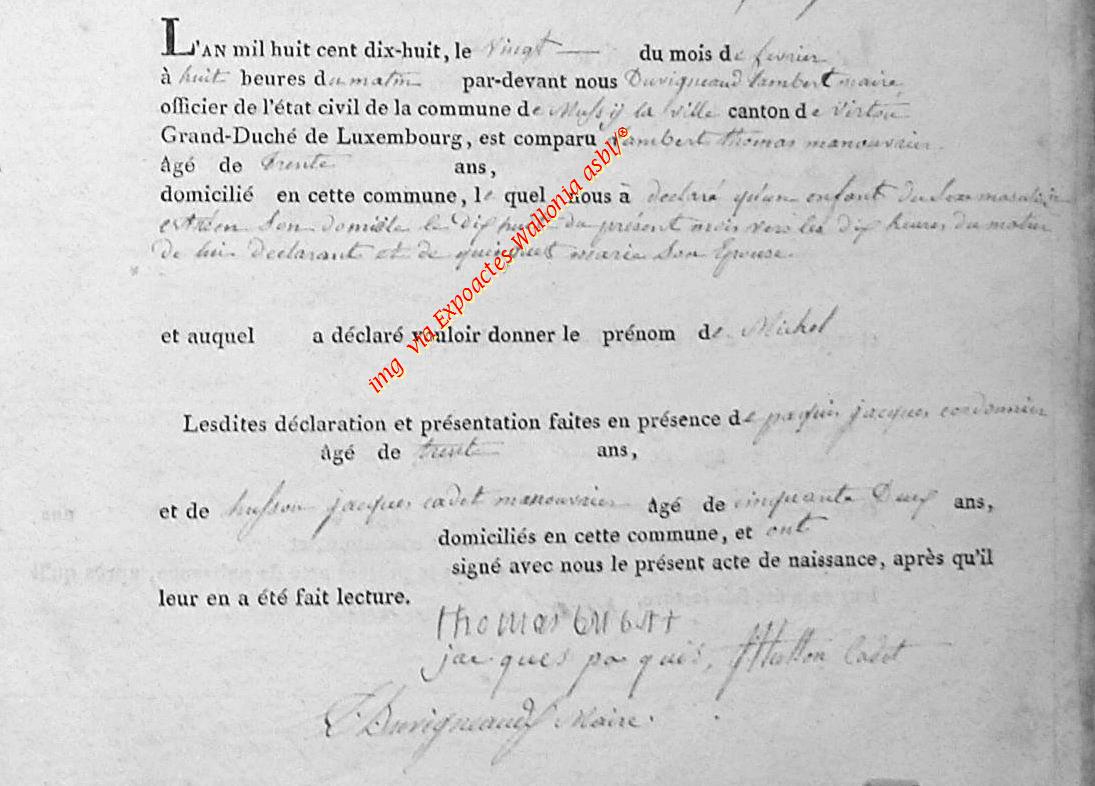 L'AN mil huit cent dix-huit, le vingt du mois de fevrier
à huit heures du matin par-devant nous Duvigneaud Lambert maire,
officier de l'état civil de la commune de Mussy la ville canton de Virton
Grand-Duché de Luxembourg, est comparu Lambert thomas manouvrier.
Âgé de trente ans,
domicilié en cette commune, le quel nous à declaré qu'un enfant du sexe masculin
est né en Son domicile le dix huit du présent mois vers les dix heures du matin
de lui declarant et de maria Son Epouse.
et auquel a déclaré vouloir donner le prénom de Michel
Lesdites déclaration et présentation faites en présence de paquis jacques cordonnier
âgé de trente ans,
et de husson jacques cadet manouvrier âgé de cinquante Deux ans,
domiciliés en cette commune, et ont
signé avec nous le présent acte de naissance, après qu'il
leur en a été fait lecture.
thomas
jacques paquis, JHusson Cadet
L. Duvigneaud Maire.
img via Expoactes-Wallonia asbl/®